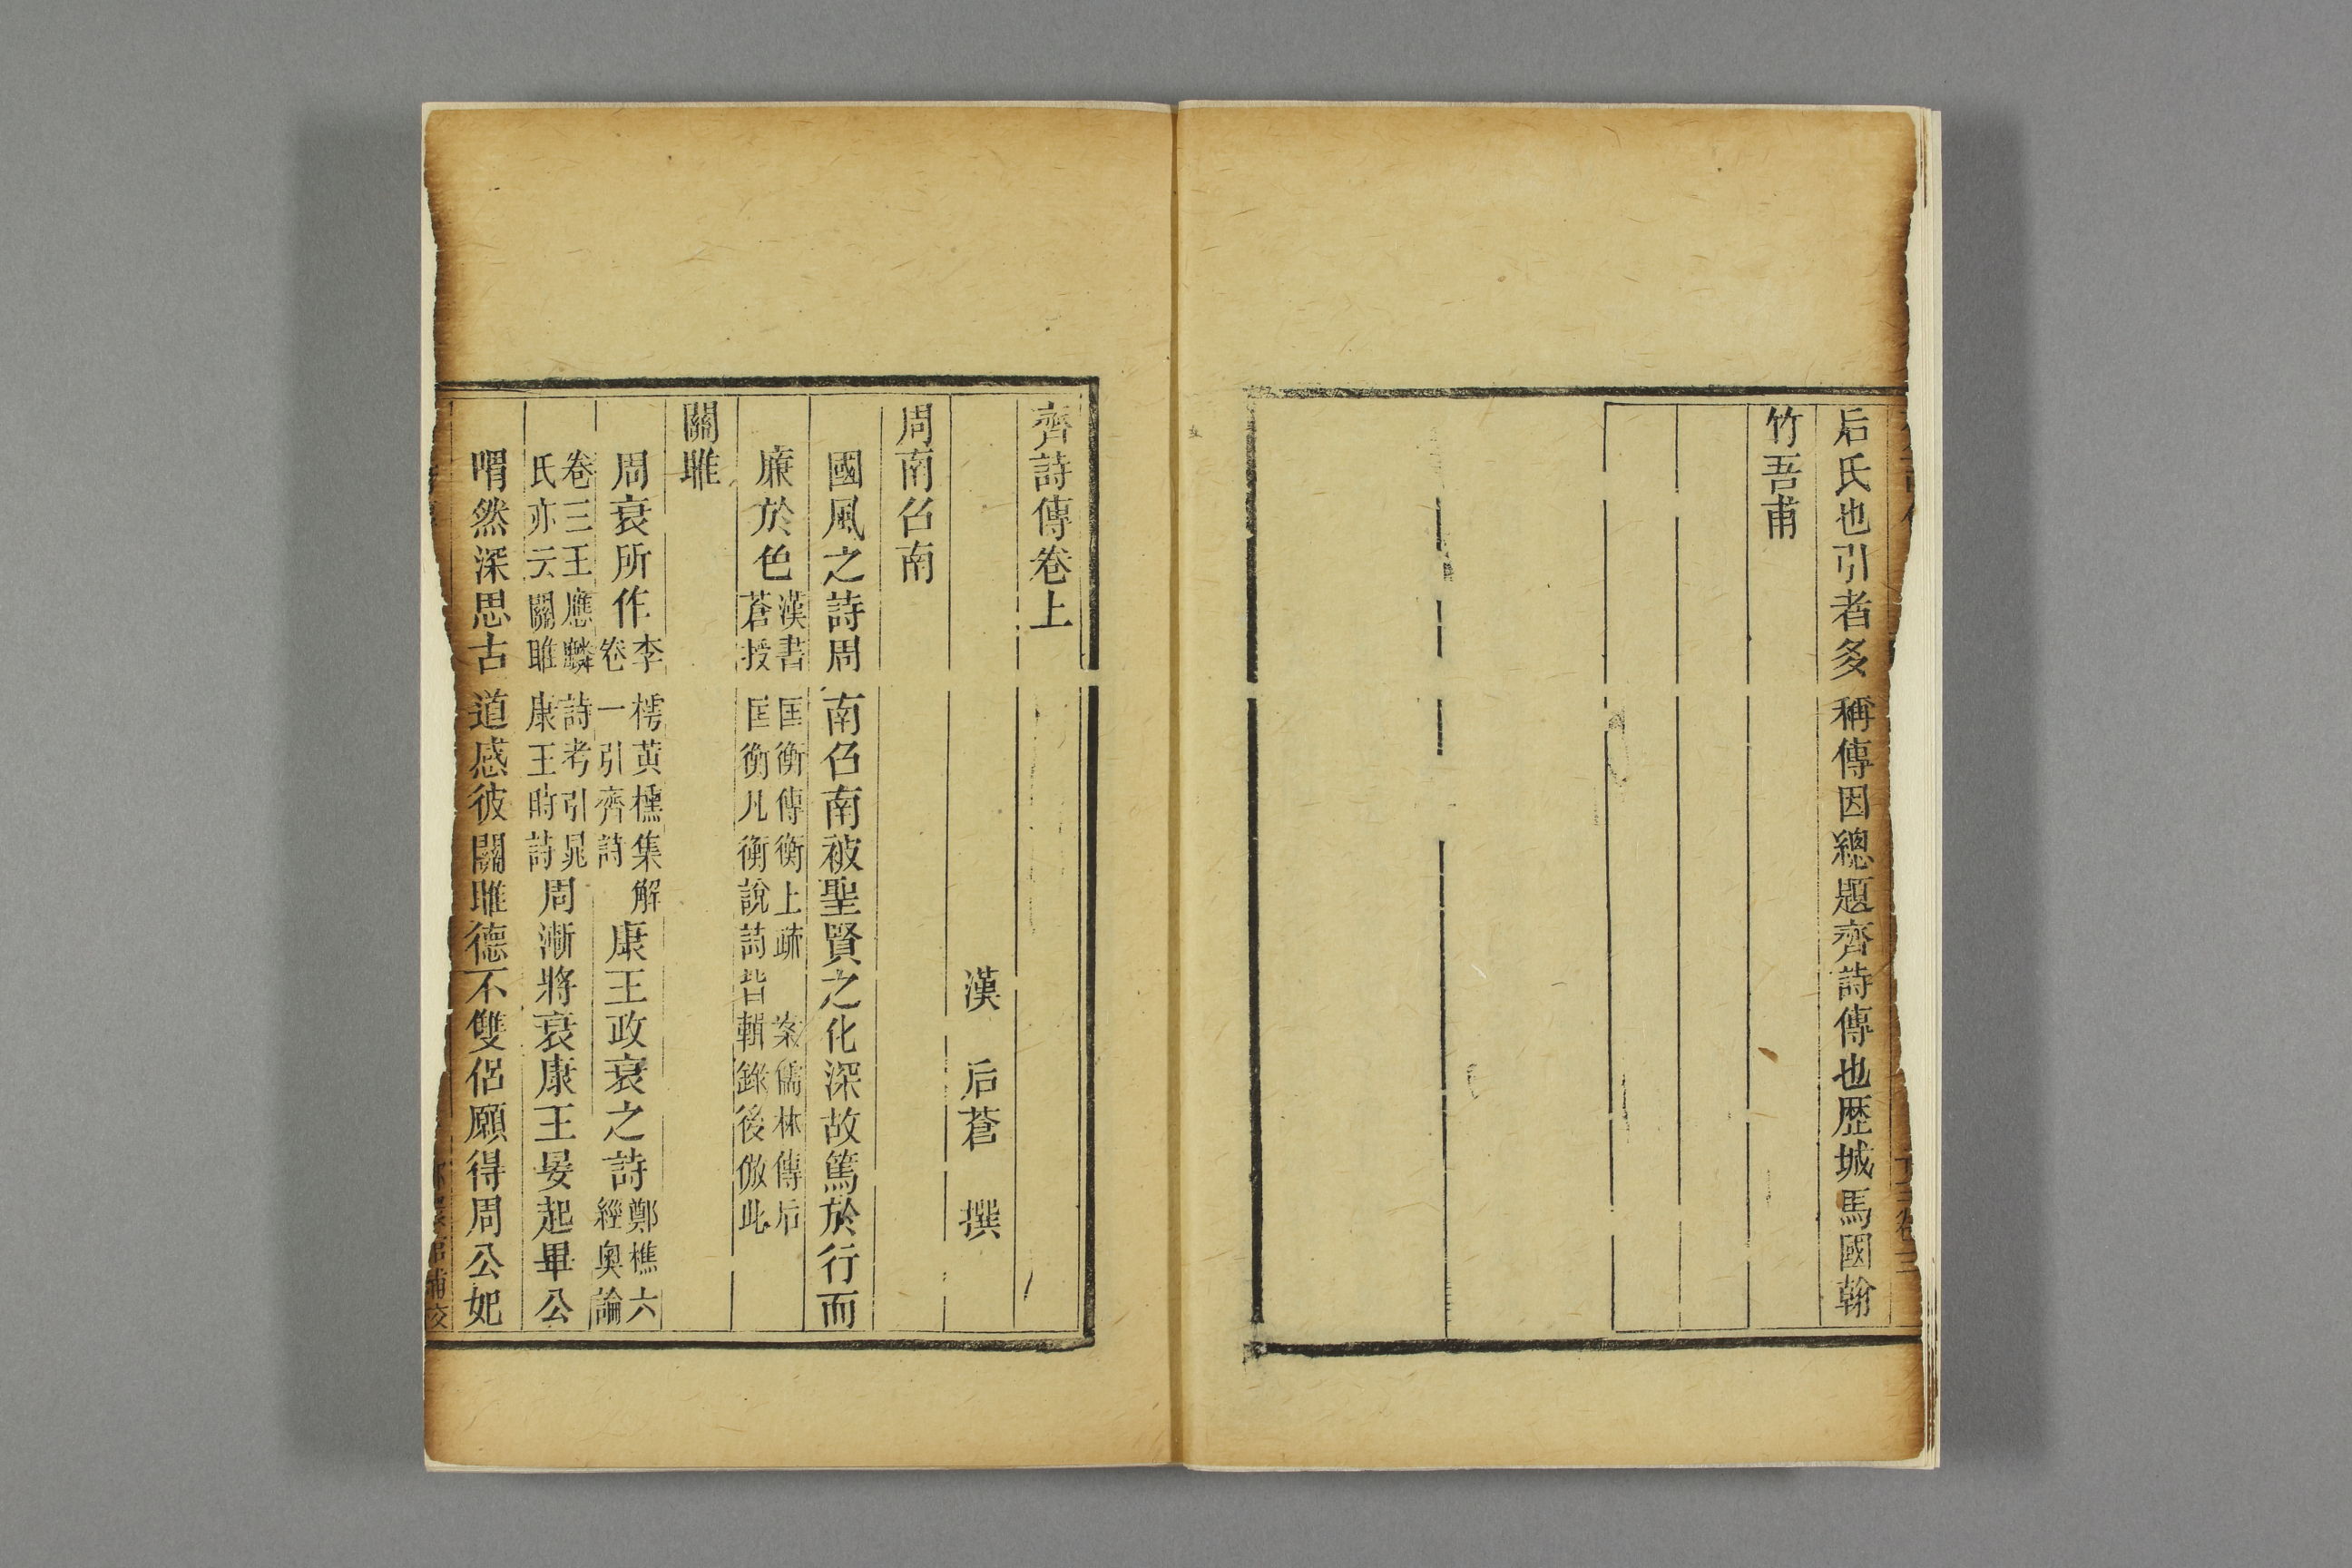 后氏也引者多稱傳因總題齊詩傳也歷城馬國翰
竹吾甫
齊詩傳卷上
漢 后蒼 撰
周南召南
國風之詩周南召南被聖賢之化深故篤於行而
廉於色漢書匡衡傳衡上疏 案儒林傳后
蒼授匡衡凡衡說詩皆輯錄後倣此
關雎
周衰所作李樗黃櫄集解
卷一引齊詩康王政衰之詩鄭樵六
經奧論
卷三王應麟詩考引晁
氏亦云關雎康王時詩周漸將衰康王晏起畢公
喟然深思古道感彼關雎德不雙侶願得周公妃
補校